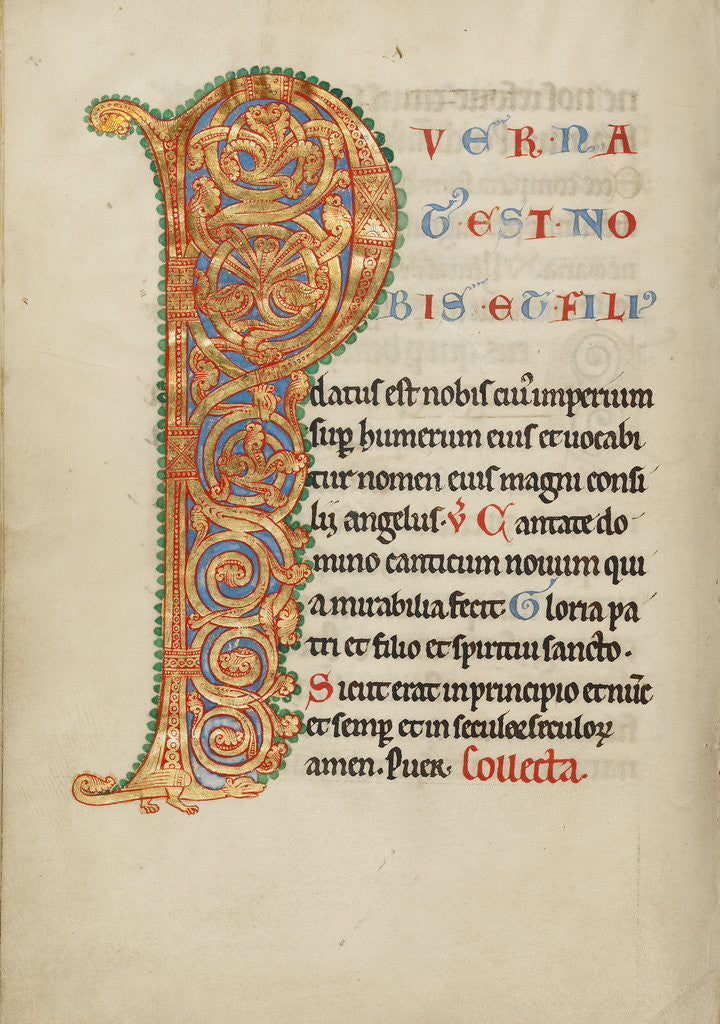 P
VER·NA
T·EST·NO
BIS·ET·FILI᾽
datus est nobis cui᾽ imperium
sup̲ humerum eius et uocabi
tur nomen eius magni consi
lij angelus· v̓ Cantate do
mino canticum nouum qui
a mirabilia fecit Gloria pa
tri et filio et spiritui sancto·
Sicut erat in principio et nūc
et semp̲ et in seculoꝝ seculoꝝ
amen. Puer. Collecta.